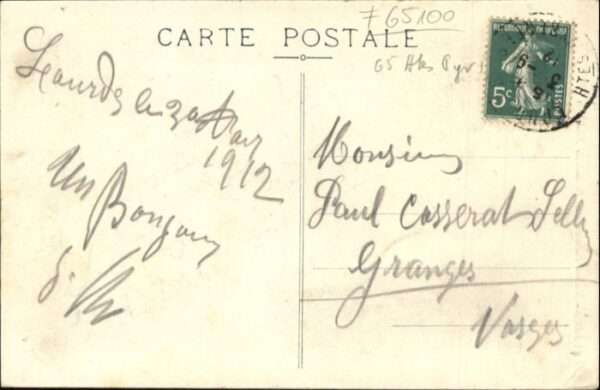 7 65100
CARTE POSTALE
65 Htes Pyr
5c
POSTES
Lourdes le 30 May
1912
Un Bonjour
Monsieur
Paul Cosserat
Granges
Vosges